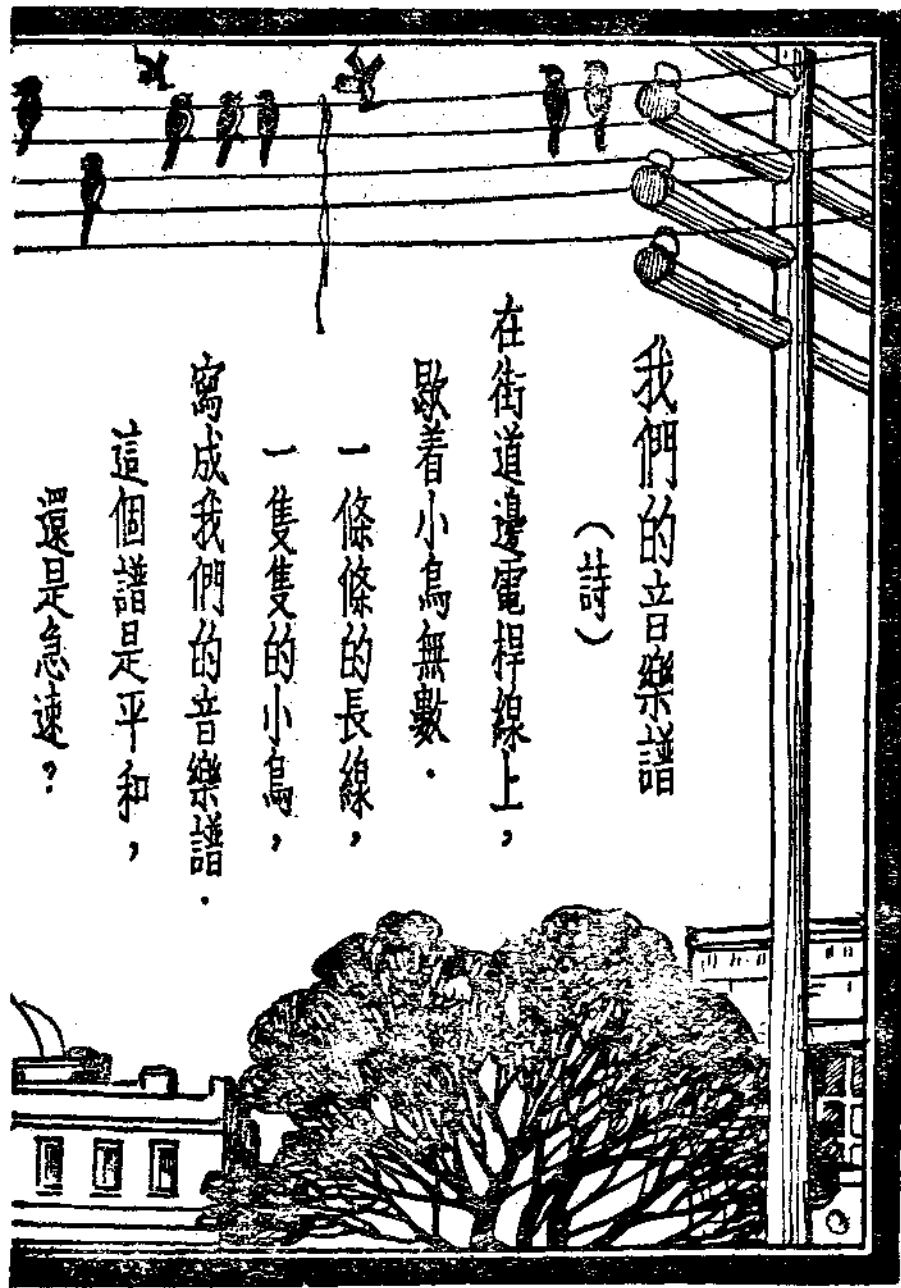 我們的音樂譜
(詩)
在街道邊電桿線上，
歇着小鳥無數．
一條條的長線，
一隻隻的小鳥，
寫成我們的音樂譜．
這個譜是平和，
還是急速？